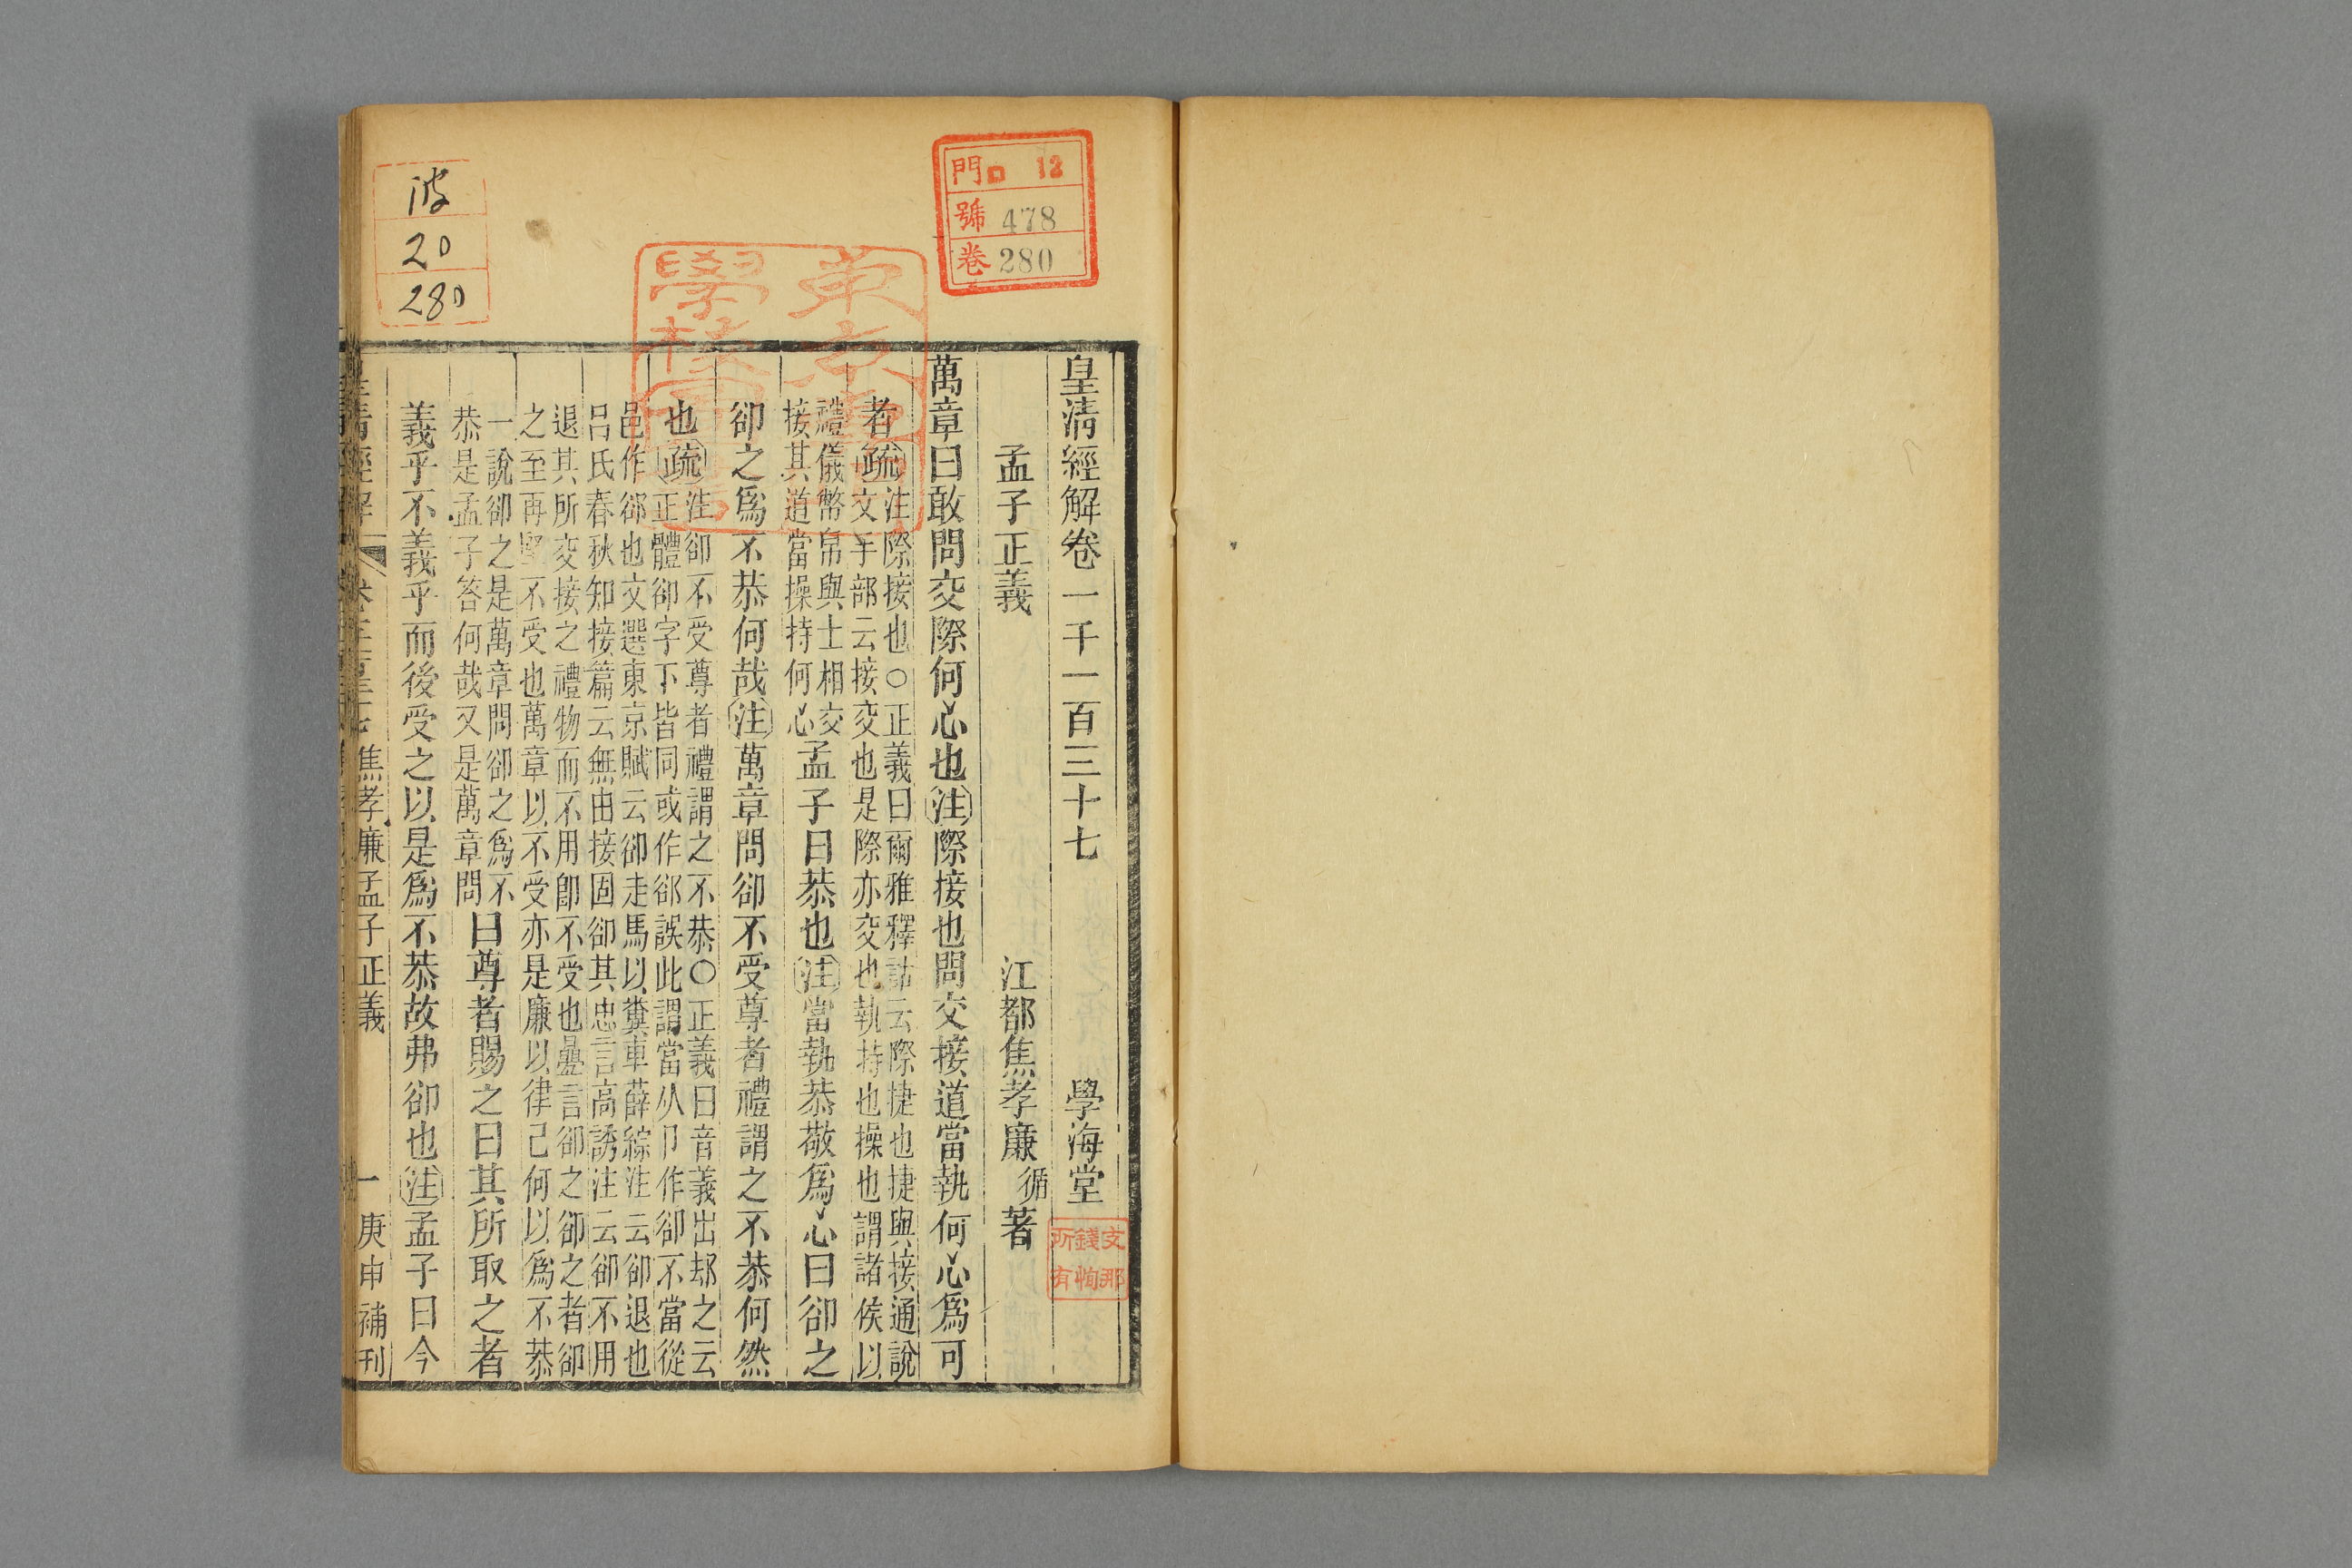 皇清經解卷一千一百三十七 學海堂
孟子正義 江都焦孝廉循著
萬章曰敢問交際何心也注際接也問交接道當執何心爲可
者疏注際接也○正義曰爾雅釋詁云際捷也捷與接通說
文手部云接交也是際亦交也執持也操也謂諸侯以
禮儀幣帛與士相交
接其道當操持何心
孟子曰恭也注當執恭敬爲心曰卻之
卻之爲不恭何哉注萬章問卻不受尊者禮謂之不恭何然
也疏注卻不受尊者禮謂之不恭○正義曰音義出却之云
正體卻字下皆同或作郤誤此謂當从卩作卻不當從
邑作郤也文選東京賦云卻走馬以糞車薛綜注云卻退也
呂氏春秋知接篇云無由接固卻其忠言高誘注云卻不用
退其所交接之禮物而不用卽不受也疊言卻之卻之者卻
之至再堅不受也萬章以不受亦是廉以律己何以爲不恭
一說卻之是萬章問卻之爲不
恭是孟子答何哉又是萬章問
曰尊者賜之曰其所取之者
義乎不義乎而後受之以是爲不恭故弗卻也注孟子曰今
焦孝廉孟子正義 一 庚申補刊
門 12
號 478
卷 280
波
20
280
支那
錢恂
所有